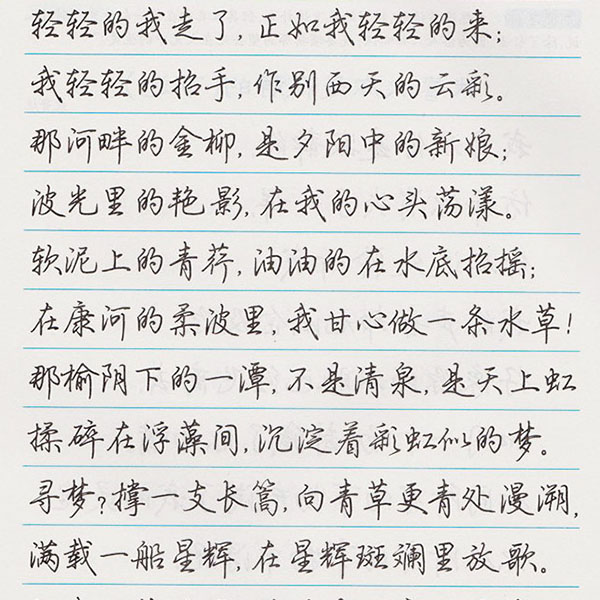 轻轻的我走了,正如我轻轻的来;
我轻轻的招手,作别西天的云彩。
那河畔的金柳,是夕阳中的新娘;
波光里的艳影,在我的心头荡漾。
软泥上的青荇,油油的在水底招摇;
在康河的柔波里,我甘心做一条水草!
那榆阴下的一潭,不是清泉,是天上虹
揉碎在浮藻间,沉淀着彩虹似的梦。
寻梦?撑一支长篙,向青草更青处漫溯,
满载一船星辉,在星辉斑斓里放歌。